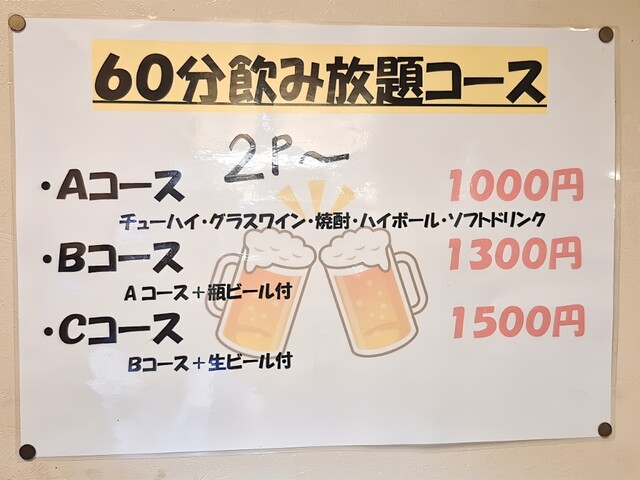 60分飲み放題コース
2P～
・Aコース 1000円
チューハイ・グラスワイン・焼酎・ハイボール・ソフトドリンク
・Bコース 1300円
Aコース＋瓶ビール付
・Cコース 1500円
Bコース＋生ビール付